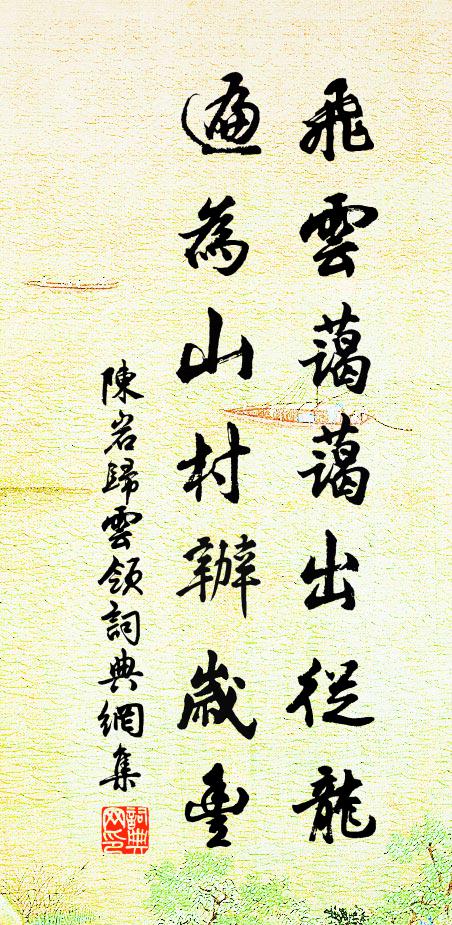 飛雲藹藹出從龍
遍為山村辦歲豐
陳岩歸雲領詞典網集
詞典网印